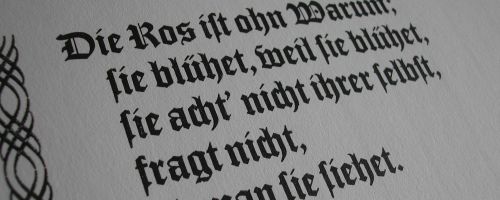 Die Ros iſt ohn Warum,
ſie blühet, weil ſie blühet,
ſie acht' nicht ihrer ſelbſt,
fragt nicht,
man ſie ſiehet.